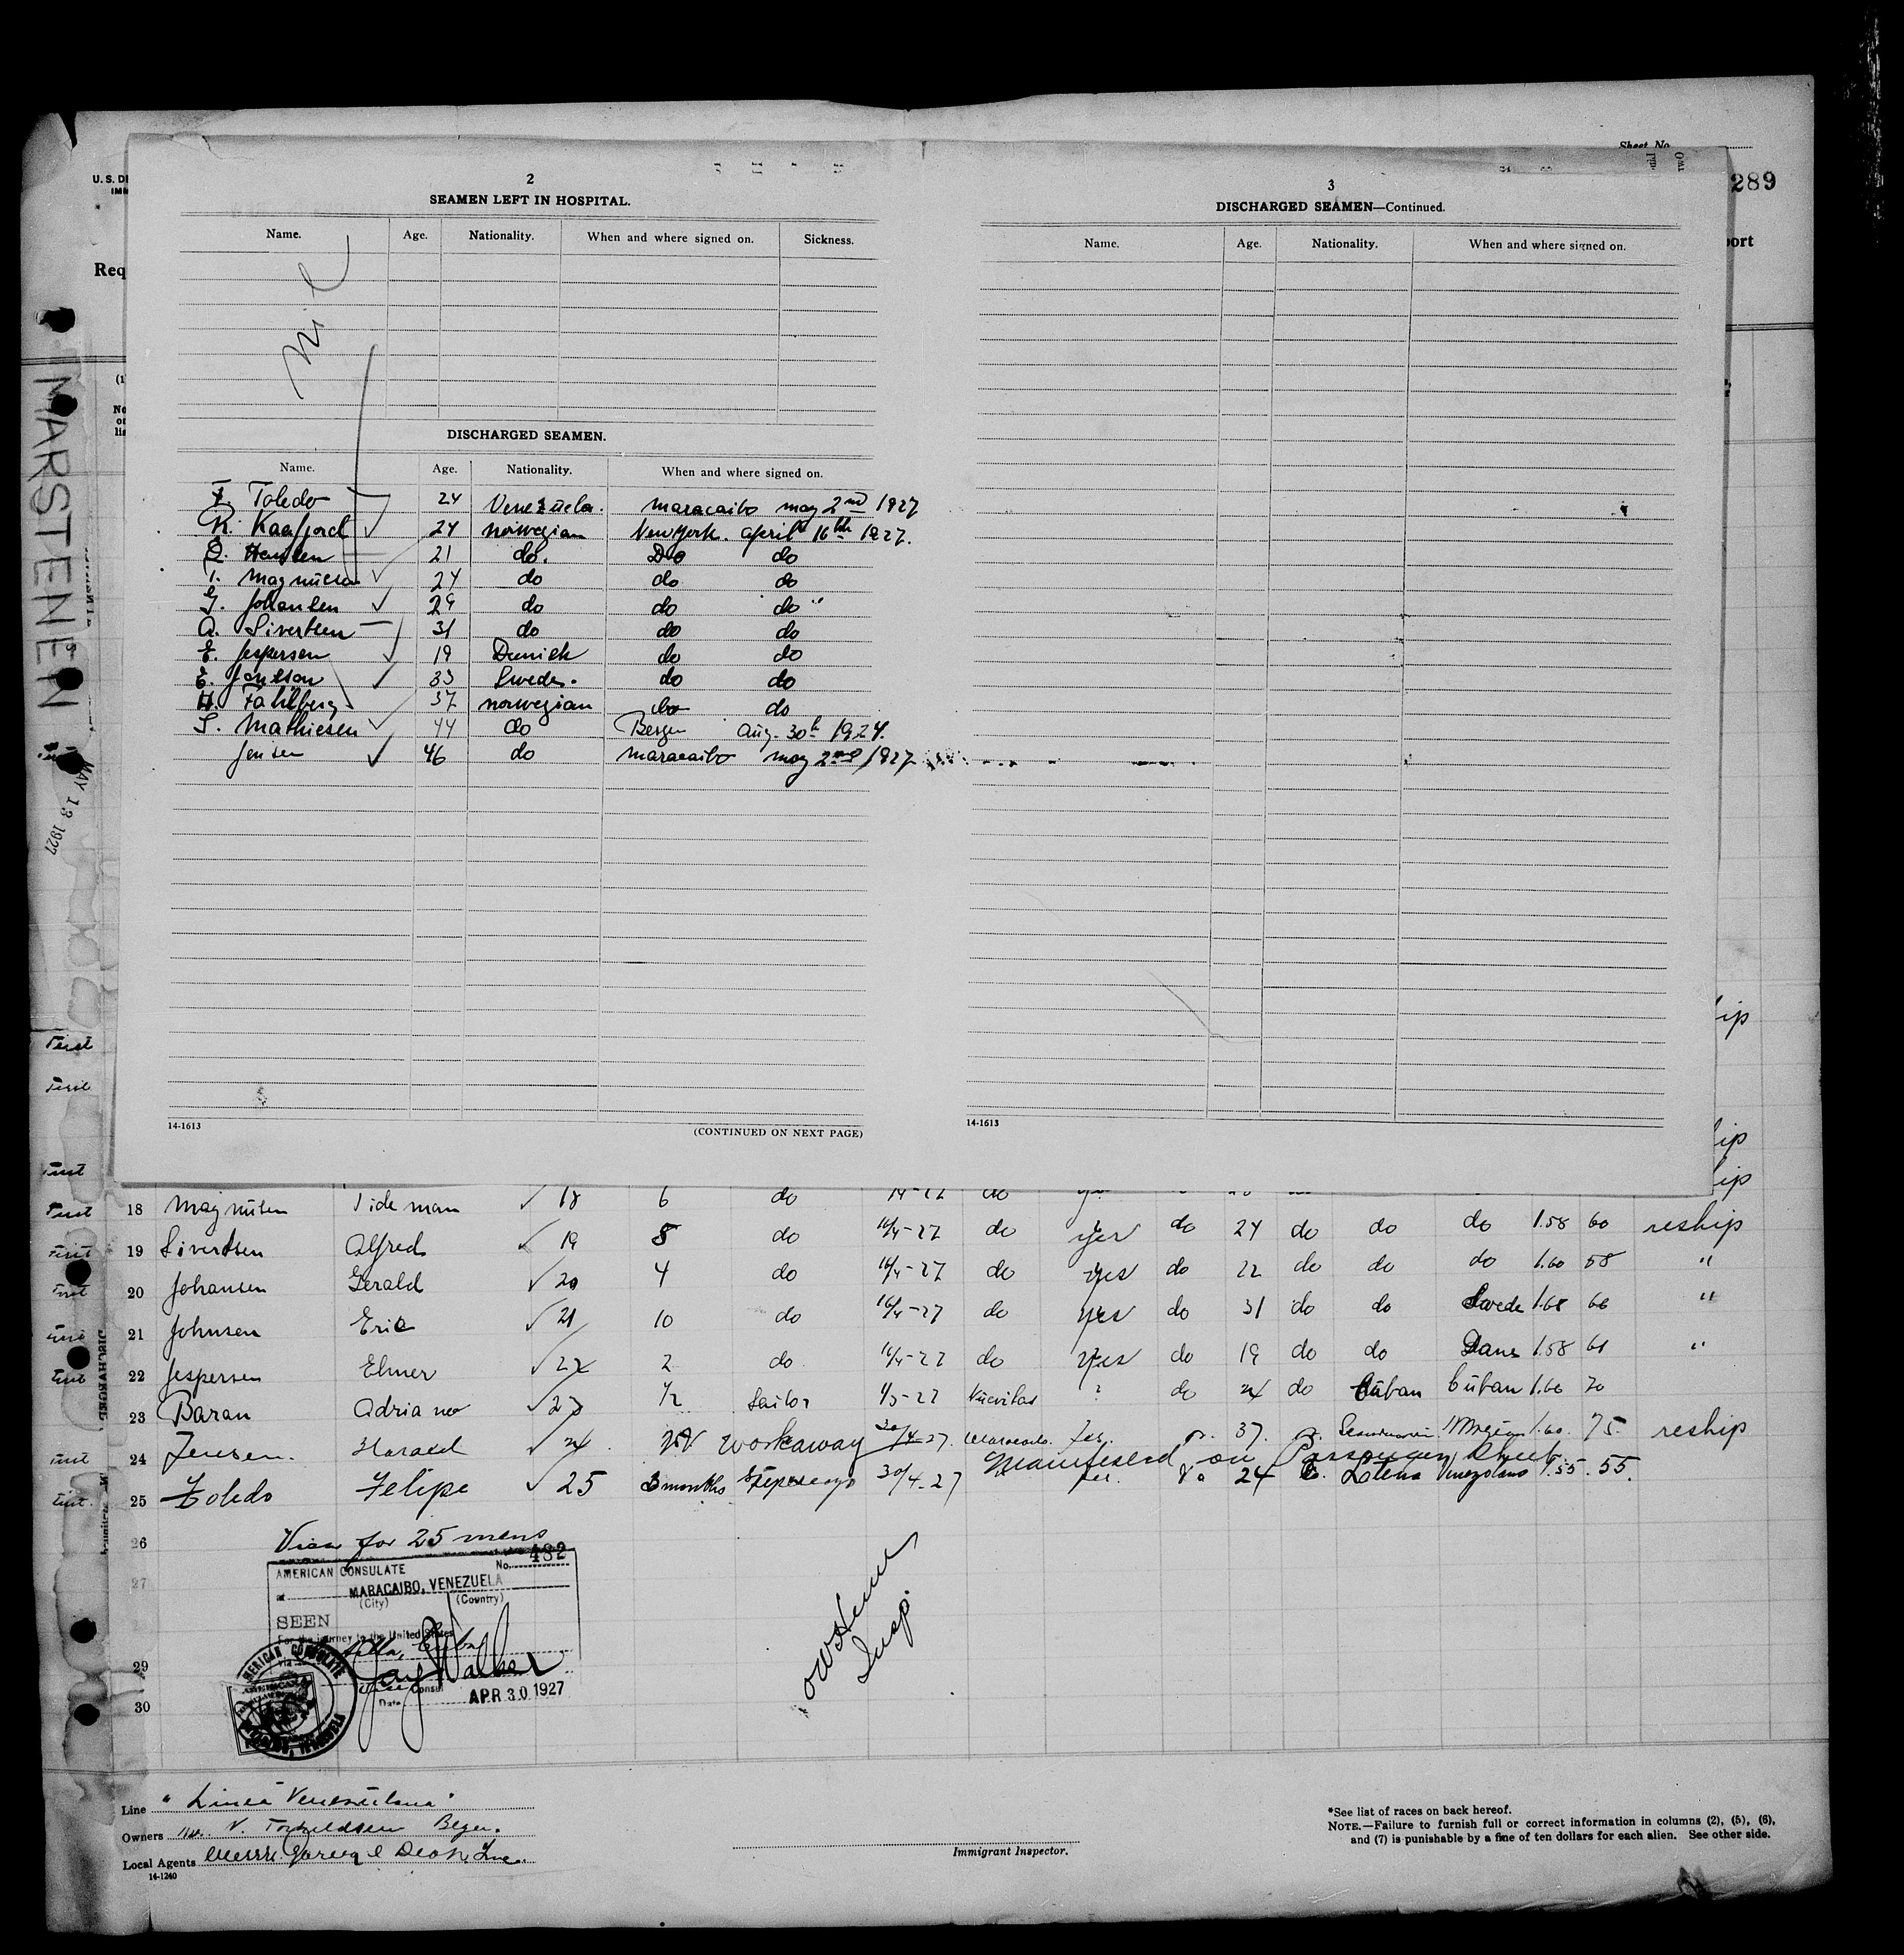 Sheet No.
U. S. DE
IMM
289
Req
port
MARSTENEN
MAY 13 1927
2
SEAMEN LEFT IN HOSPITAL.
Name. Age. Nationality. When and where signed on. Sickness.
Nil
DISCHARGED SEAMEN.
Name. Age. Nationality. When and where signed on.
F. Toledo 24 Venezuela. Maracaibo may 2nd 1927
R. Kaafjord 24 norwegian New York. April 16th 1927.
Hansen 21 do. Do do
T. Magnusen 24 do do do
G. Johansen 29 do do do "
A. Sivertsen 31 do do do
E. Jespersen 19 Danish do do
E. Jonsson 33 Swede. do do
H. Fahlberg 37 norwegian do do
S. Mathiesen 44 do Bergen Aug. 30th 1924.
Jensen 46 do Maracaibo may 2nd 1927
14-1613
(CONTINUED ON NEXT PAGE)
3
DISCHARGED SEAMEN—Continued.
Name. Age. Nationality. When and where signed on.
14-1613
18 Magnusen Tideman 18 6 do do
19 Sivertsen Alfred 19 8 do 16/4-27 do yes do 24 do do do 1.58 60 reship
20 Johansen Gerald 20 4 do 16/4-27 do yes do 22 do do do 1.60 58 "
21 Johnsen Eric 21 10 do 16/4-27 do yes do 31 do do Swede 1.68 66 "
22 Jespersen Elmer 22 2 do 16/4-27 do yes do 19 do do Dane 1.58 61 "
23 Baran Adriano 23 1/2 Sailor 1/5-27 ? do 24 do Cuban Cuban 1.60 70
24 Jensen. Harald 24 workaway 30/4-27 Maracaibo. yes. 37. 1.60. 75. reship
Manifested on Passenger Sheet
25 Toledo Felipe 25 3 months 30/4-27 yes. 24 Venezolano 1.55. 55.
26 Visa for 25 mens
27
29
30
AMERICAN CONSULATE No. 482
at MARACAIBO, VENEZUELA
(City) (Country)
SEEN
For the journey to the United States
Via Cuba
Jay Walker
Vice Consul
Date APR 30 1927
AMERICAN CONSULATE
Insp.
Line "Linea Venezuelana"
Owners V. Torkildsen Bergen.
Local Agents Messrs.
14-1240
Immigrant Inspector.
*See list of races on back hereof.
NOTE.—Failure to furnish full or correct information in columns (2), (5), (6),
and (7) is punishable by a fine of ten dollars for each alien. See other side.